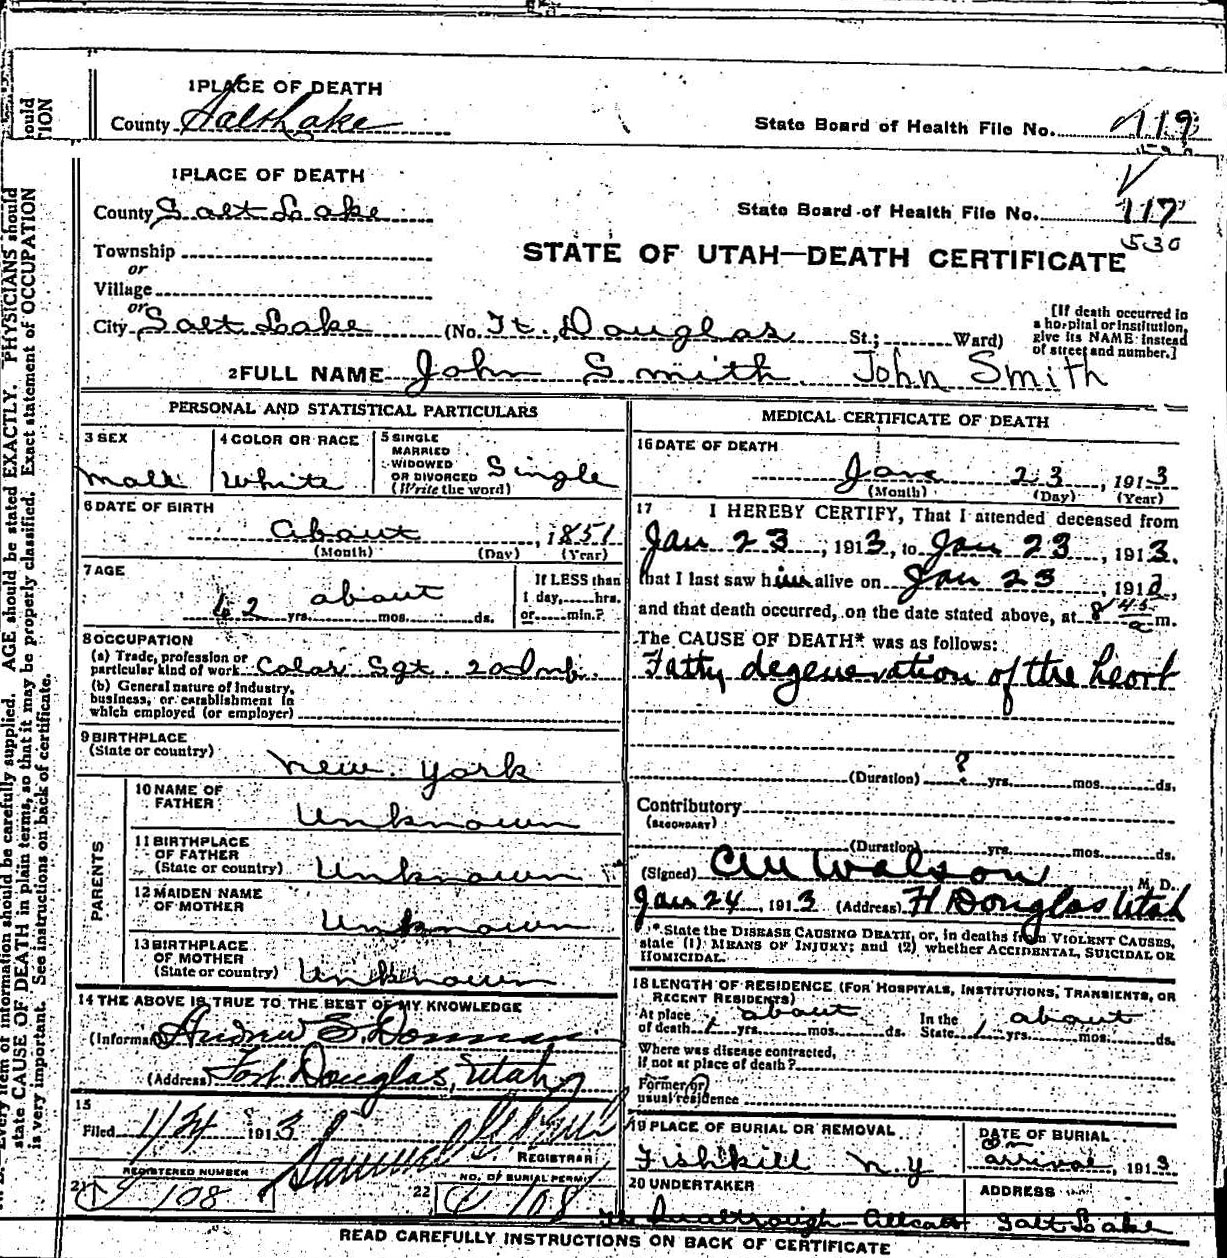 1 PLACE OF DEATH
County Salt Lake
State Board of Health File No. 719
1 PLACE OF DEATH
County Salt Lake
State Board of Health File No. 717
530
Township
STATE OF UTAH—DEATH CERTIFICATE
or
Village
or
City Salt Lake (No. Ft. Douglas St.; Ward)
[If death occurred in
a hospital or institution,
give its NAME instead
of street and number.]
2 FULL NAME John Smith. John Smith
PERSONAL AND STATISTICAL PARTICULARS
3 SEX
Male
4 COLOR OR RACE
White
5 SINGLE
MARRIED
WIDOWED
OR DIVORCED
(Write the word)
Single
6 DATE OF BIRTH
About , 1851
(Month) (Day) (Year)
7 AGE
about
62 yrs. mos. ds.
If LESS than
1 day, hrs.
or min.?
8 OCCUPATION
(a) Trade, profession or
particular kind of work Color Sgt. 20 Inf.
(b) General nature of industry,
business, or establishment in
which employed (or employer)
9 BIRTHPLACE
(State or country)
New York
PARENTS
10 NAME OF
FATHER
Unknown
11 BIRTHPLACE
OF FATHER
(State or country) Unknown
12 MAIDEN NAME
OF MOTHER
Unknown
13 BIRTHPLACE
OF MOTHER
(State or country) Unknown
14 THE ABOVE IS TRUE TO THE BEST OF MY KNOWLEDGE
(Informant Andrew S.
(Address) Fort Douglas, Utah
15
Filed 1/24 1913
Samuel
REGISTRAR
REGISTERED NUMBER
21 108
NO. OF BURIAL PERMIT
22 108
MEDICAL CERTIFICATE OF DEATH
16 DATE OF DEATH
Jan 23, 1913
(Month) (Day) (Year)
17 I HEREBY CERTIFY, That I attended deceased from
Jan 23, 1913, to Jan 23, 1913.
that I last saw him alive on Jan 23, 1913,
and that death occurred, on the date stated above, at 8 45 a m.
The CAUSE OF DEATH* was as follows:
Fatty degeneration of the heart
(Duration) ? yrs. mos. ds.
Contributory
(SECONDARY)
(Duration) yrs. mos. ds.
(Signed) CM Walson, M. D.
Jan 24, 1913 (Address) Ft Douglas Utah
* State the DISEASE CAUSING DEATH, or, in deaths from VIOLENT CAUSES,
state (1) MEANS OF INJURY; and (2) whether ACCIDENTAL, SUICIDAL OR
HOMICIDAL.
18 LENGTH OF RESIDENCE (FOR HOSPITALS, INSTITUTIONS, TRANSIENTS, OR
RECENT RESIDENTS)
At place about In the about
of death 1 yrs. mos. ds. State 1 yrs. mos. ds.
Where was disease contracted,
if not at place of death?
Former or
usual residence
19 PLACE OF BURIAL OR REMOVAL
Fishkill N Y
DATE OF BURIAL
On
arrival, 1913
20 UNDERTAKER
ADDRESS
Salt Lake
READ CAREFULLY INSTRUCTIONS ON BACK OF CERTIFICATE
Every item of information should be carefully supplied. AGE should be stated EXACTLY. PHYSICIANS should
state CAUSE OF DEATH in plain terms, so that it may be properly classified. Exact statement of OCCUPATION
is very important. See instructions on back of certificate.